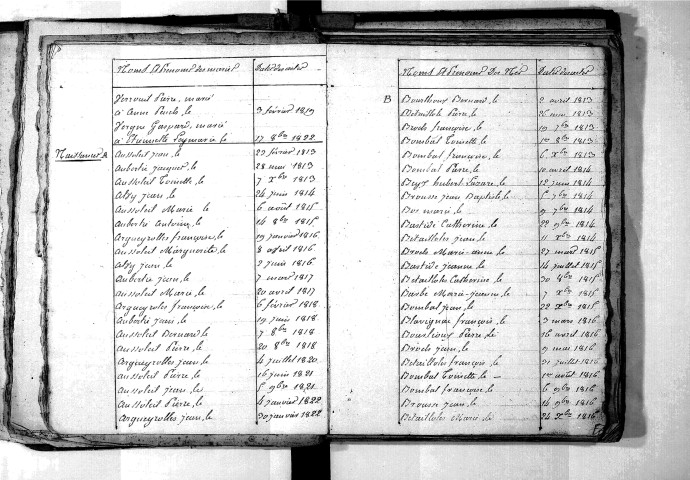 Noms & Prénoms des mariés Dates des actes
Verrouil Pierre, marié
à Anne Pende, le 3 février 1819
Vergne Gaspard, marié
à Pierrette Leymarie, le 17 8bre 1822
Naissances A Aussoleil Jean, le 27 février 1813
Aubertie Jacques, le 28 mai 1813
Aussoleil Toinette, le 7 Xbre 1813
Alby Jean, le 24 juin 1814
Aussoleil Marie le 6 août 1815
Aubertie Antoine, le 14 8bre 1815
Arqueyrolles françoise, le 19 janvier 1816
Aussoleil Marguerite, le 8 avril 1816
Alby Jean, le 2 juin 1816
Aubertie Jean, le 7 mars 1817
Aussoleil Marie, le 20 avril 1817
Arqueyrolles françoise, le 6 février 1818
Aubertie Jean, le 19 juin 1818
Aussoleil Bernard le 7 8bre 1818
Aussoleil Pierre, le 20 8bre 1818
Arqueyrolles Jean, le 4 juillet 1820
Aussoleil Pierre, le 16 juin 1821
Aussoleil Jean, le 5 9bre 1821
Aussoleil Pierre, le 4 janvier 1822
Arqueyrolles Jean, le 30 janvier 1822
Noms & Prénoms Des Nés Dates des actes
B Bourthoux Bernard, le 2 avril 1813
Betailhle Pierre, le 26 mai 1813
Brods françoise, le 19 7bre 1813
Bombal Toinette, le 1er 8bre 1813
Bombal françoise, le 6 Xbre 1813
Bombal Pierre, le 10 avril 1814
Beyt hubert Lazare, le 12 juin 1814
Brousse Jean Baptiste, le 5 7bre 1814
Bos marie, le 9 7bre 1814
Bastide Catherine, le 22 9bre 1814
Betailloles Jean, le 11 Xbre 1814
Brods Marie-anne, le 27 mars 1815
Bastide Jeanne, le 14 juillet 1815
Betailoles Catherine, le 30 8bre 1815
Barbe Marie-Jeanne, le 7 Xbre 1815
Bombal Jean, le 28 Xbre 1815
Blavignac françois, le 3 mars 1816
Bourlioux Pierre, le 16 avril 1816
Brods Jean, le 9 mai 1816
Betailloles françois, le 31 juillet 1816
Bombal Toinette, le 1er août 1816
Bombal françoise, le 6 9bre 1816
Brousse Jean, le 14 9bre 1816
Betailloles Marie, le 24 Xbre 1816